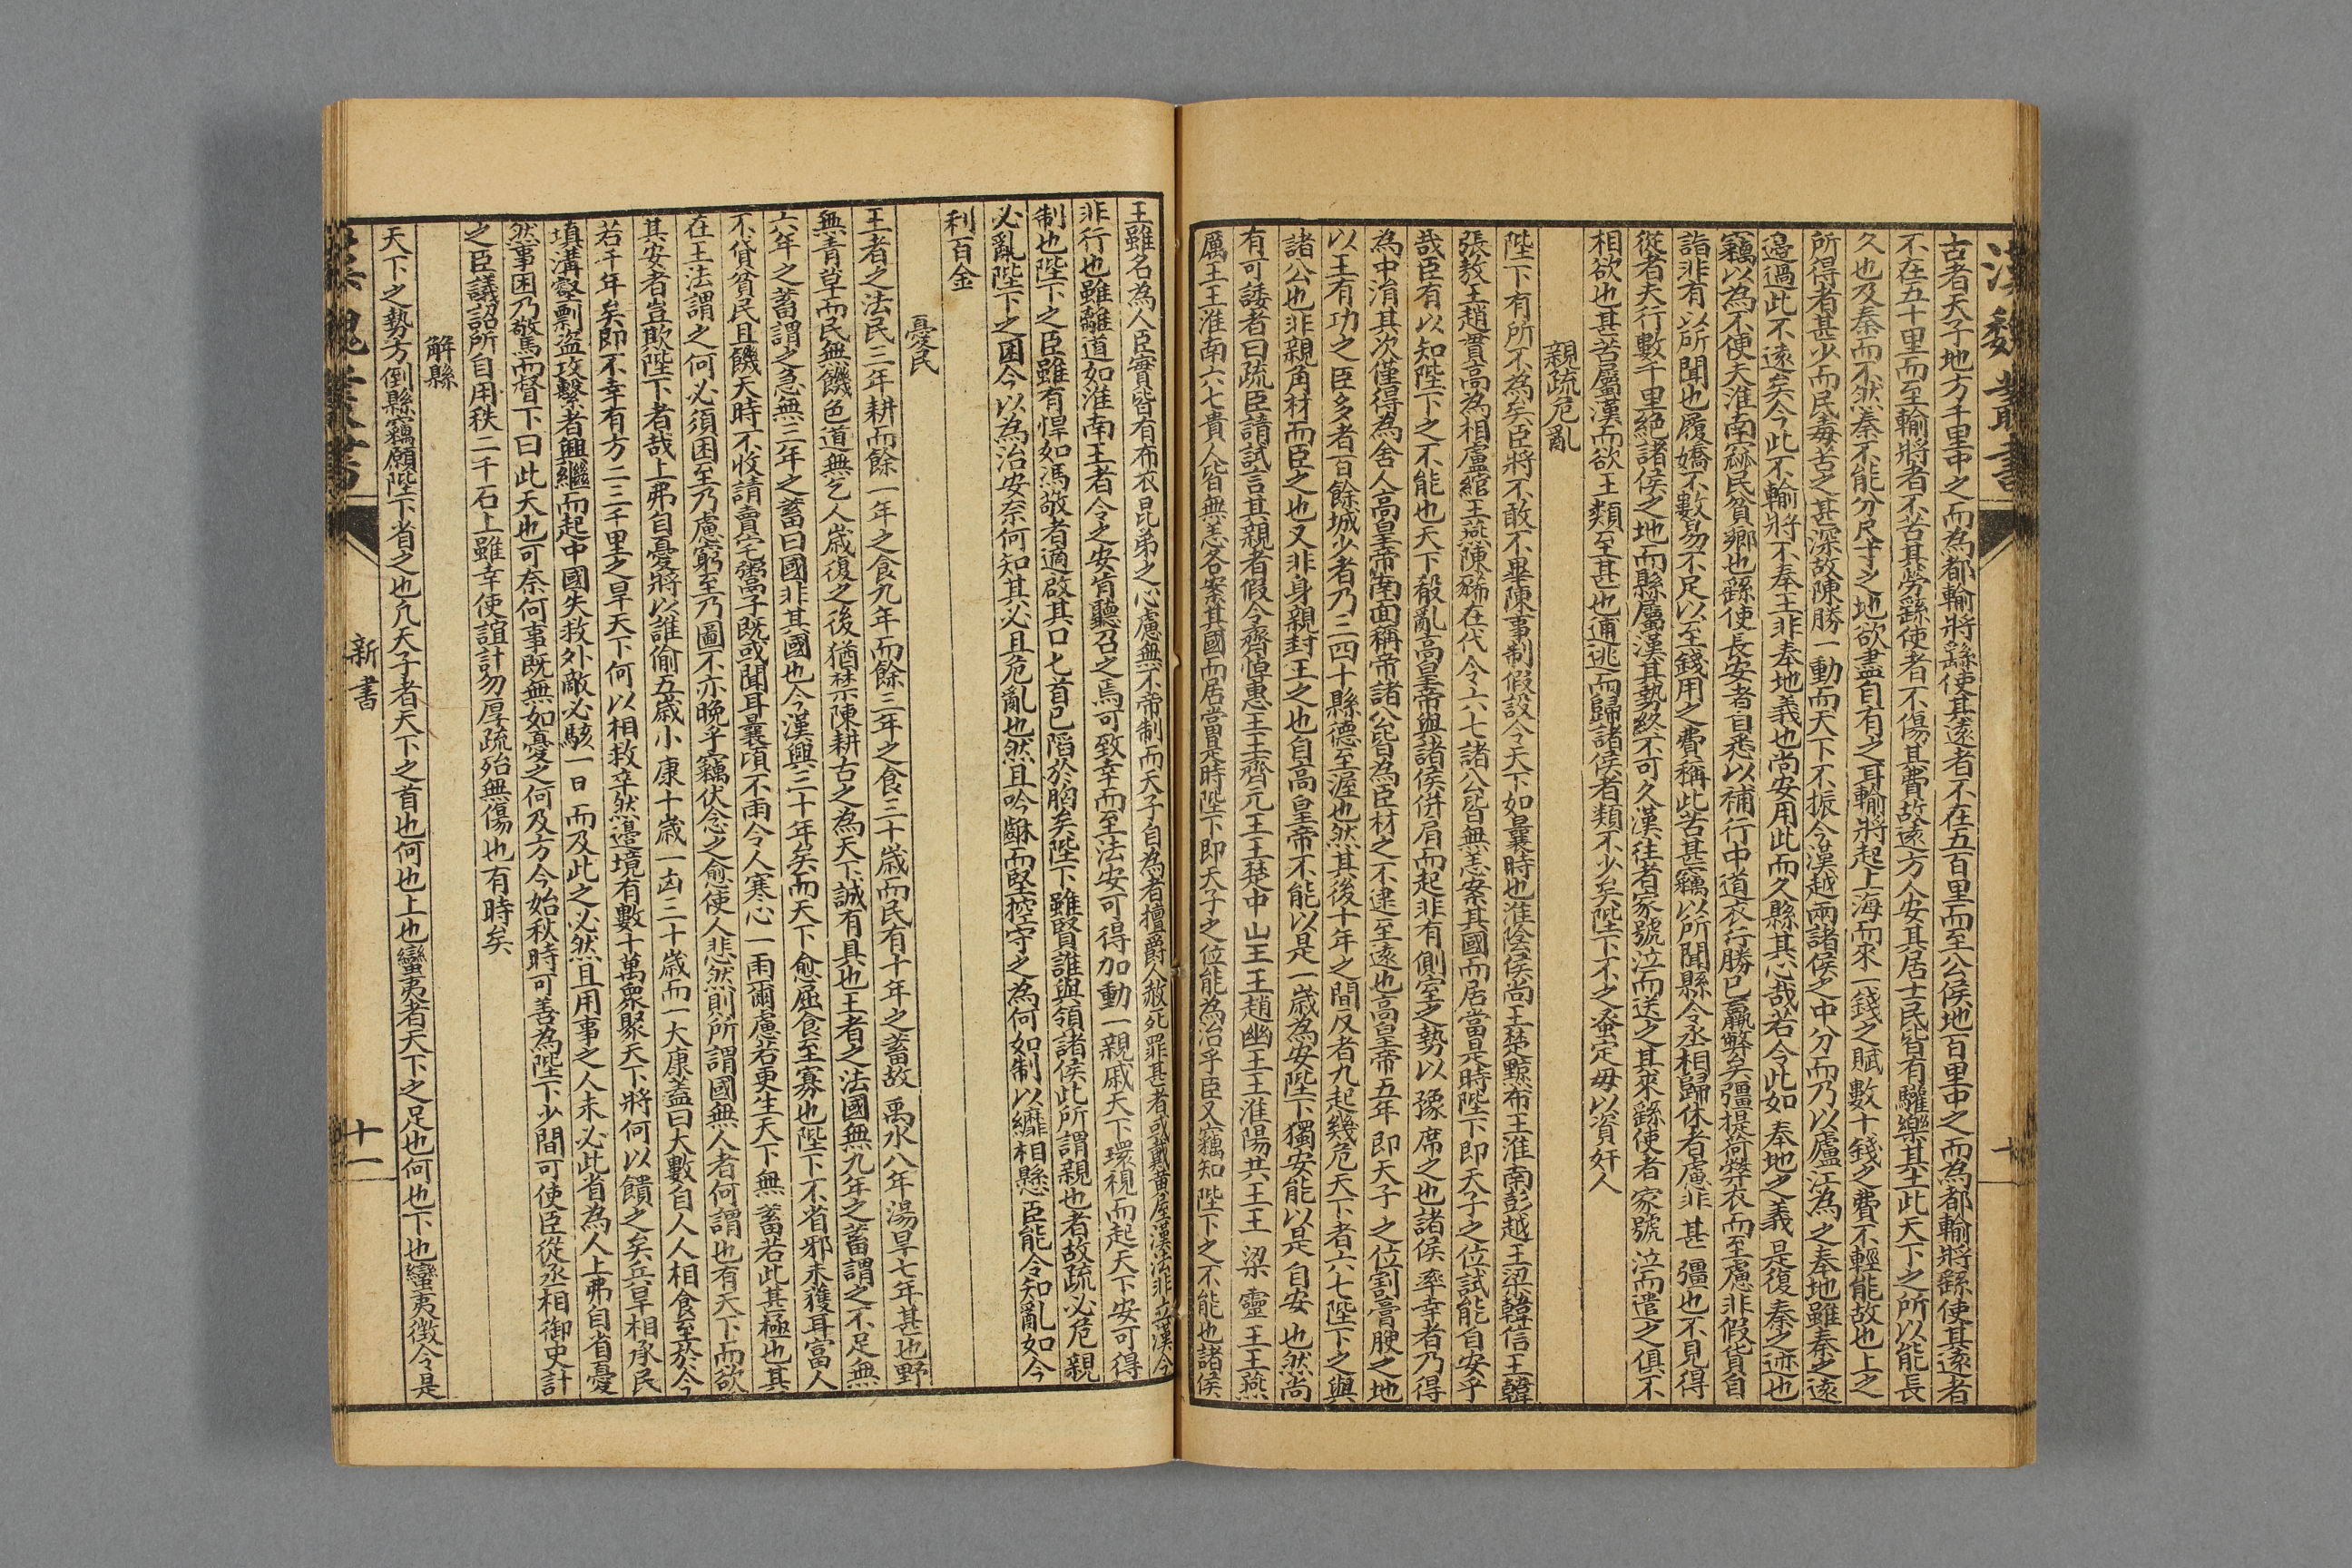 漢魏叢書
古者天子地方千里中之而為都輸將繇使其遠者不在五百里而至公侯地百里中之而為都輸將繇使其遠者
不在五十里而至輸將者不苦其勞繇使者不傷其費故遠方人安其居士民皆有驩樂其土此天下之所以能長
久也及秦而不然秦不能分尺寸之地欲盡自有之耳輸將起上海而來一錢之賦數十錢之費不輕能故也上之
所得者甚少而民毒苦之甚深故陳勝一動而天下不振今漢越兩諸侯之中分而乃以廬江為之奉地雖秦之遠
邉過此不遠矣今此不輸將不奉主非奉地義也尚安用此而久縣其心哉若令此如奉地之義是復秦之迹也
竊以為不便夫淮南窳民貧鄉也繇使長安者自悉以補行中道衣行勝已羸弊矣彊提荷弊衣而至慮非假貸自
詣非有以所聞也履蹻不數易不足以至錢用之費稱此苦甚竊以所聞縣令丞相歸休者慮非甚彊也不見得
從者夫行數千里絕諸侯之地而縣屬漢其勢終不可久漢往者家號泣而送之其來繇使者家號泣而遣之俱不
相欲也甚苦屬漢而欲王類至甚也逋逃而歸諸侯者類不少矣陛下不之蚤定毋以資奸人
親疏危亂
陛下有所不為矣臣將不敢不畢陳事制假設令天下如曩時也淮陰侯尚王楚黥布王淮南彭越王梁韓信王韓
張敖王趙貫高為相盧綰王燕陳豨在代令六七諸公皆無恙案其國而居當是時陛下即天子之位試能自安乎
哉臣有以知陛下之不能也天下殽亂高皇帝與諸侯併肩而起非有側室之勢以豫席之也諸侯率幸者乃得
為中涓其次僅得為舍人高皇帝南面稱帝諸公皆為臣材之不逮至遠也高皇帝五年即天子之位割膏腴之地
以王有功之臣多者百餘城少者乃三四十縣德至渥也然其後十年之間反者九起幾危天下者六七陛下之與
諸公也非親角材而臣之也又非身親封王之也自高皇帝不能以是一歲為安陛下獨安能以是自安也然尚
有可諉者曰疏臣請試言其親者假令齊悼惠王王齊元王王楚中山王王趙幽王王淮陽共王王梁靈王王燕
厲王王淮南六七貴人皆無恙各案其國而居當是時陛下即天子之位能為治乎臣又竊知陛下之不能也諸侯
王雖名為人臣實皆有布衣昆弟之心慮無不帝制而天子自為者擅爵人赦死罪甚者或戴黄屋漢法非立漢令
非行也雖離道如淮南王者令之安肯聽召之焉可致幸而至法安可得加動一親戚天下環視而起天下安可得
制也陛下之臣雖有悍如馮敬者適啟其口匕首已陷於胸矣陛下雖賢誰與領諸侯此所謂親也者故疏必危親
必亂陛下之困今以為治安奈何知其必且危亂也然且吟齘而堅控守之為何如制以縻相懸臣能令知亂如今
利百金
憂民
王者之法民三年耕而餘一年之食九年而餘三年之食三十歲而民有十年之蓄故禹水八年湯旱七年甚也野
無青草而民無饑色道無乞人歲復之後猶禁陳耕古之為天下誠有具也王者之法國無九年之蓄謂之不足無
六年之蓄謂之急無三年之蓄曰國非其國也今漢興三十年矣而天下愈屈食至寡也陛下不省邪未獲耳富人
不貸貧民且饑天時不收請賣宅鬻子既或聞耳曩頃不雨令人寒心一雨爾慮若更生天下無蓄若此甚極也其
在王法謂之何必須困至乃慮窮至乃圖不亦晚乎竊伏念之愈使人悲然則所謂國無人者何謂也有天下而欲
其安者豈欺陛下者哉上弗自憂將以誰偷五歲小康十歲一凶三十歲而一大康蓋曰大數自人人相食至於今
若千年矣即不幸有方二三千里之旱天下何以相救卒然邉境有數十萬衆聚天下將何以饋之矣兵旱相承民
填溝壑剽盜攻擊者興繼而起中國失救外敵必駭一日而及此之必然且用事之人未必此省為人上弗自省憂
然事困乃驚而督下曰此天也可奈何事既無如憂之何及方今始秋時可善為陛下少間可使臣從丞相御史計
之臣議詔所自用秩二千石上雖幸使誼計勿厚疏殆無傷也有時矣
解縣
天下之勢方倒縣竊願陛下省之也凢天子者天下之首也何也上也蠻夷者天下之足也何也下也蠻夷徴令是
新書
十一